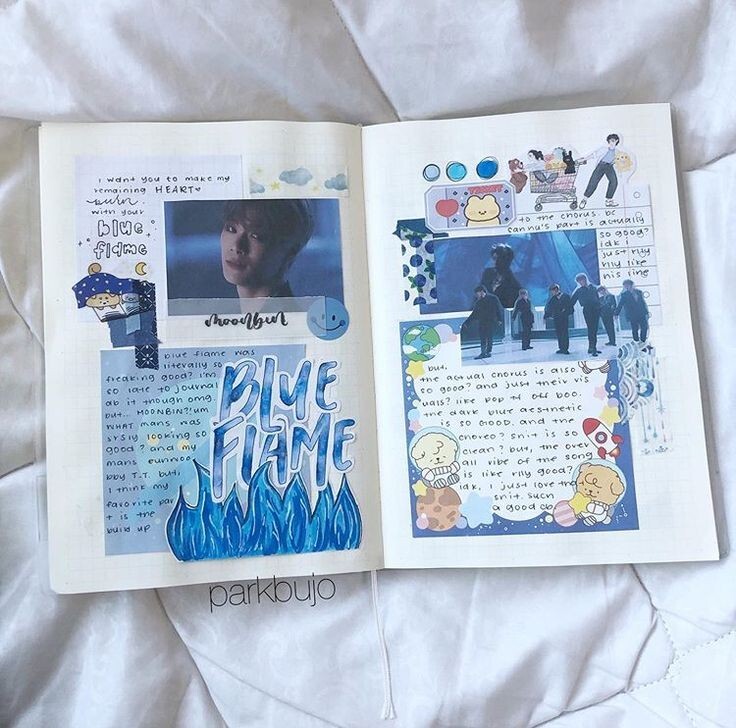 i want you to make my
remaining HEART
burn
with your
blue
flame
moonbin
blue flame was
literally so
freaking good? i'm
so late to journal
ab it though omg.
but... MOONBIN?! um
WHAT mans was
srsly looking so
good? and my
mans eunwoo
bby T.T. but,
i think my
favorite par
t is the
build up
BLUE
FLAME
TICKET
to the chorus. bc
sanha's part is actually
so good?
idk i
just rlly
rlly like
his line
but,
the actual chorus is also
so good? and just their vis
uals? like pop tf off boo.
the dark blue aesthetic
is so GOOD. and the
choreo? sh*t is so
clean? but, the over
all vibe of the song
is like rlly good?
idk, i just love that
sh*t. such
a good cb.
parkbujo